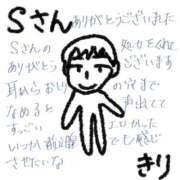 Sさんありがとうございました
Sさんの 処女をくれて
ありがとう ございます
耳からおしりの穴まで
なめると 声出てて
すっごい エロかった
いつか前立腺でも感じ
させたいな
きり